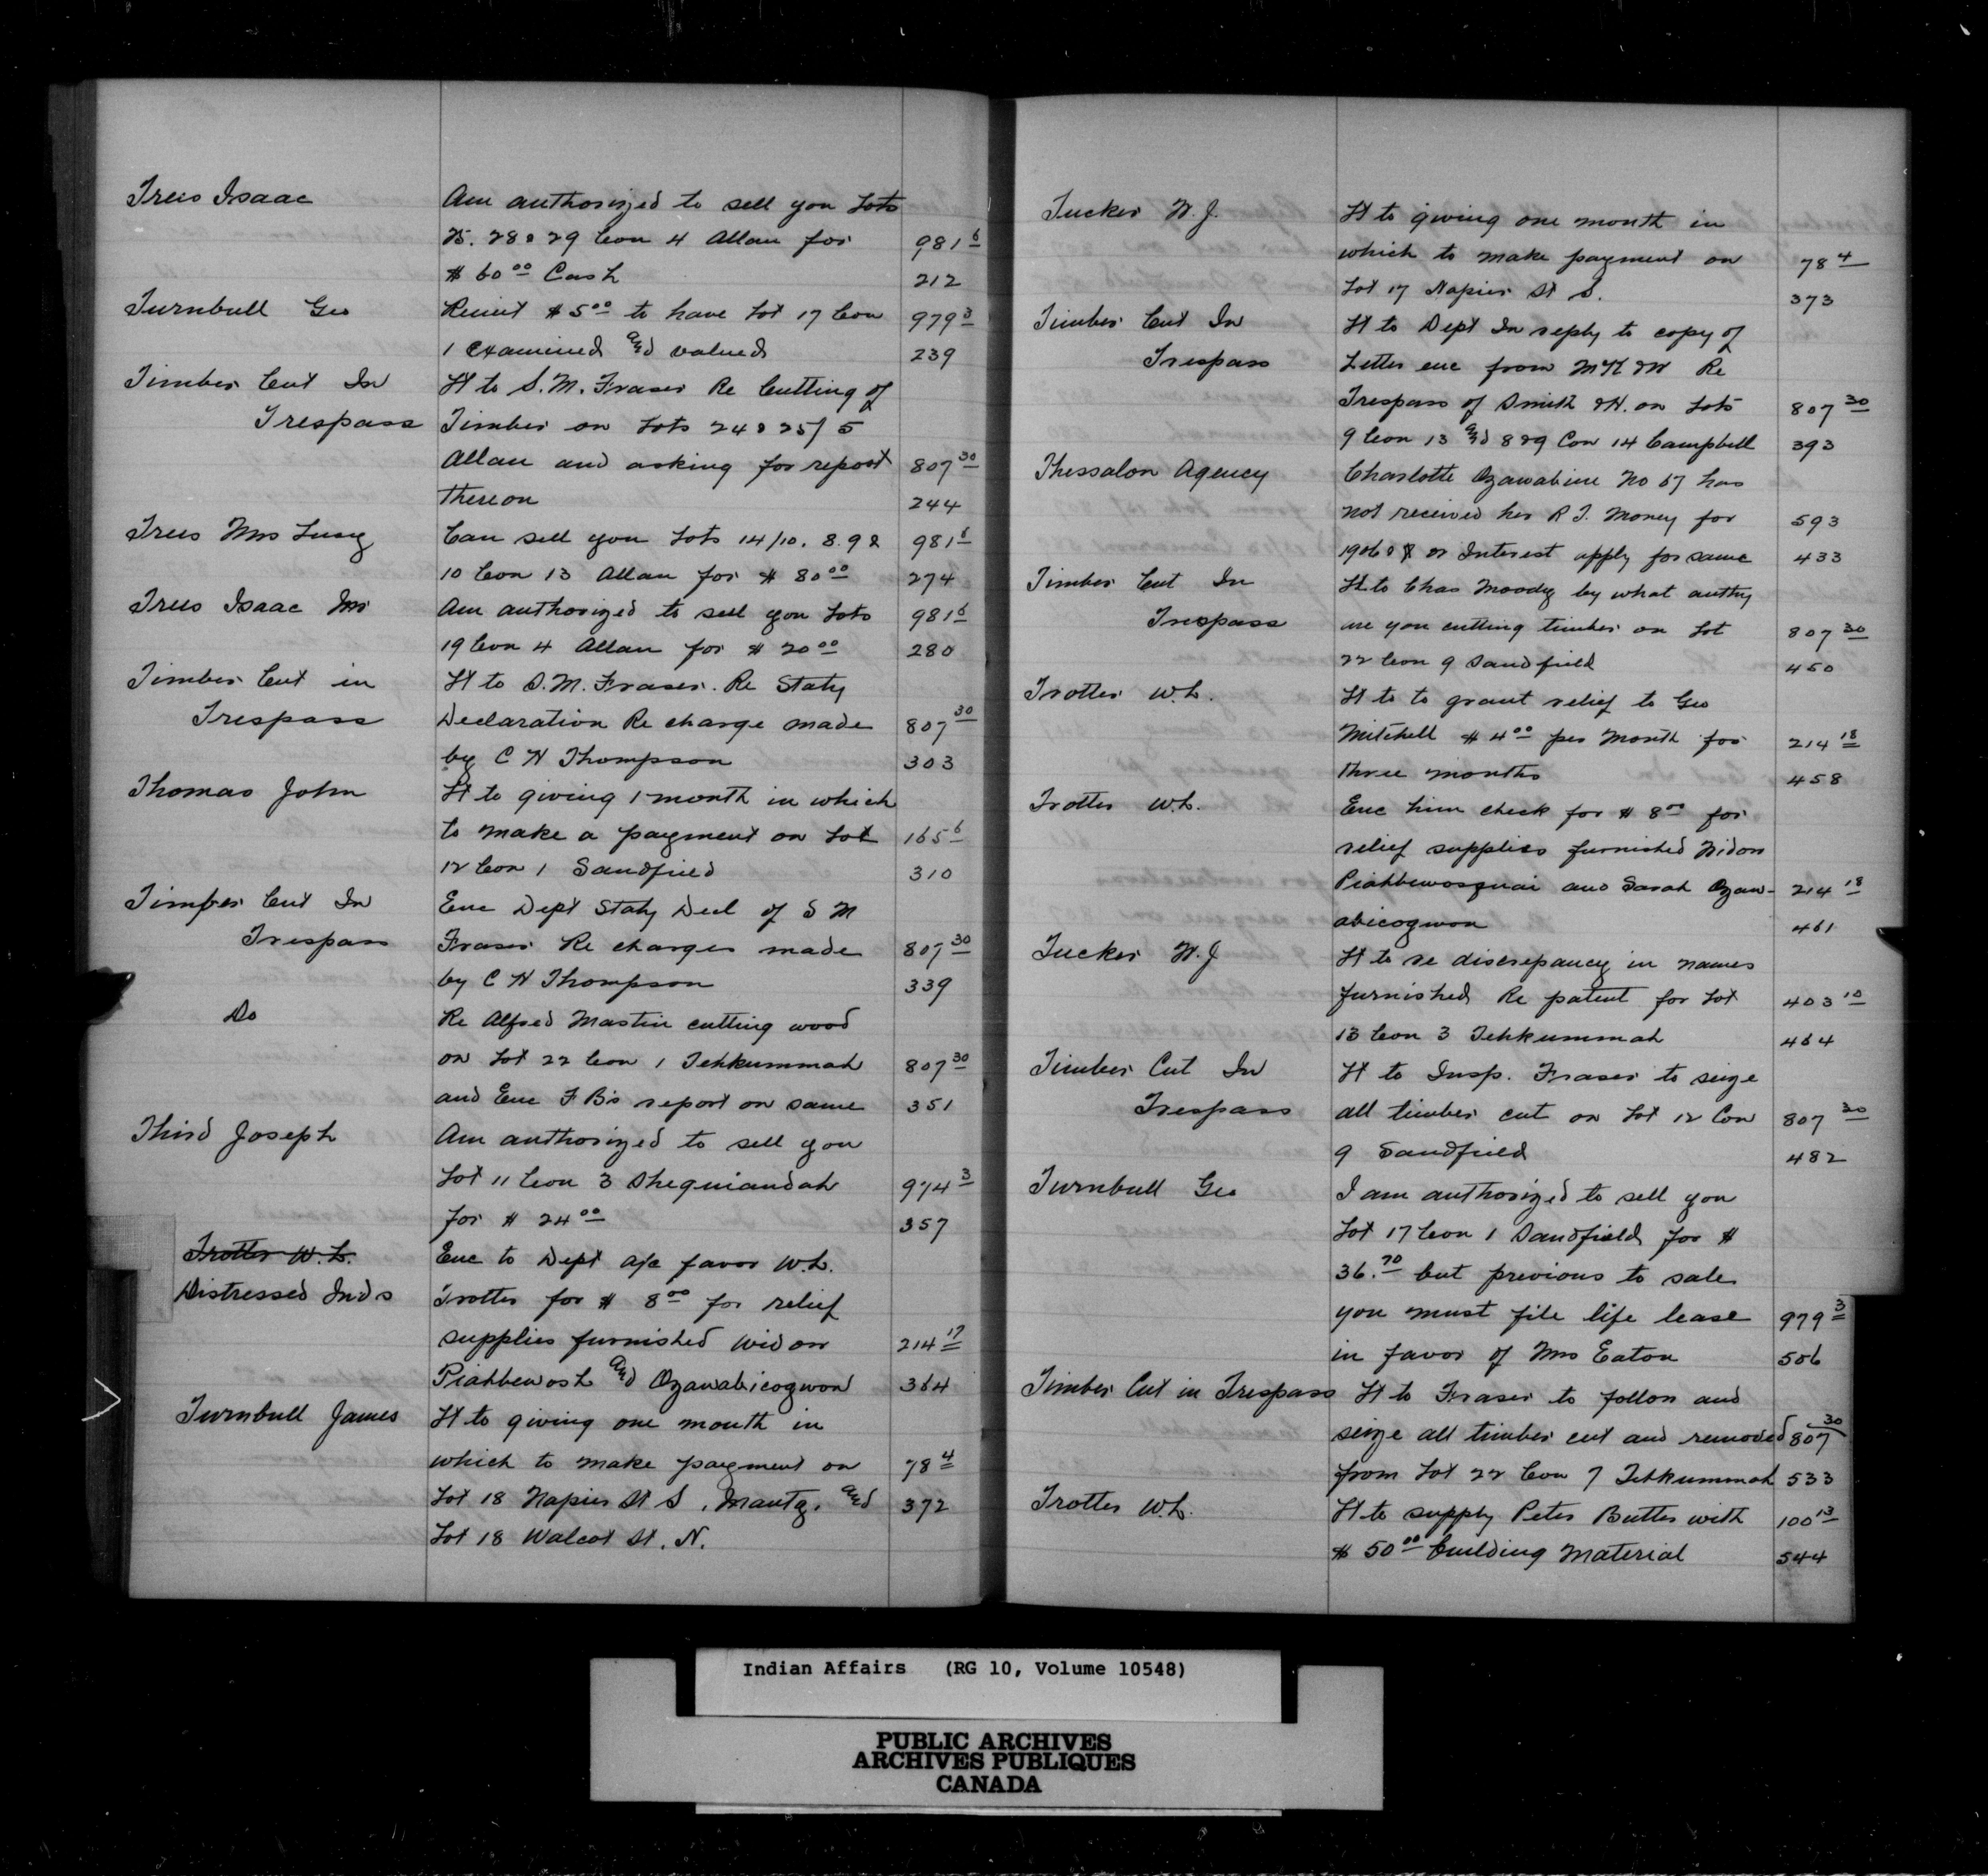 Trees Isaac Am authorized to sell you Lots
25. 28 & 29 Con 4 Allan for 981 6
$ 60 00 Cash 212
Turnbull Geo Remit $ 5 00 to have Lot 17 Con 979 3
1 examined and valued 239
Timber Cut In Lt to S. M. Fraser Re Cutting of
Trespass Timber on Lots 24 & 25/5
Allan and asking for report 807 30
thereon 244
Trees Mrs Lucy Can sell you Lots 14/10. 8. 9 & 981 6
10 Con 13 Allan for $ 80 00 274
Trees Isaac Am authorized to sell you Lots 981 6
19 Con 4 Allan for $ 20 00 280
Timber Cut in Lt to S. M. Fraser. Re Staty
Trespass Declaration Re charge made 807 30
by C H Thompson 303
Thomas John Lt to giving 1 month in which
to make a payment on Lot 165 6
12 Con 1 Sandfield 310
Timber Cut In Enc Dept Staty Decl of S M
Trespass Fraser Re charges made 807 30
by C H Thompson 339
Do Re Alfred Martin cutting wood
on Lot 22 Con 1 Tehkummah 807 30
and Enc F B's report on same 351
Third Joseph Am authorized to sell you
Lot 11 Con 3 Sheguiandah 974 3
for $ 24 00 357
Trotter W. L. Enc to Dept a/c favor W. L.
Distressed Inds Trotter for $ 8 00 for relief
supplies furnished Widow 214 17
Piahbewosh and Ozawabicogwon 364
Turnbull James Lt to giving one month in
which to make payment on 78 4
Lot 18 Napier St S, Mantg. and 372
Lot 18 Walcot St. N.
Tucker W. J. Lt to giving one month in
which to make payment on 78 4
Lot 17 Napier St S. 373
Timber Cut In Lt to Dept In reply to copy of
Trespass Letter enc from Re
Trespass of Smith & H. on Lots 807 30
9 Con 13 and 8 & 9 Con 14 Campbell 393
Thessalon Agency Charlotte Ozawabine No 57 has
not received her R T. Money for 593
1906 & 8 or Interest apply for same 433
Timber Cut In Lt to Chas Moody by what authy
Trespass are you cutting timber on Lot 807 30
22 Con 9 Sandfield 450
Trotter W. L. Lt to to grant relief to Geo
Mitchell $ 4 00 per Month for 214 18
three months 458
Trotter W. L. Enc him check for $ 8 00 for
relief supplies furnished Widow
Piahbewosquai and Sarah Ozaw- 214 18
abicogwon 461
Tucker W. J Lt to re discrepancy in names
furnished Re patent for Lot 403 10
13 Con 3 Tehkummah 464
Timber Cut In Lt to Insp. Fraser to seize
Trespass all timber cut on Lot 12 Con 807 30
9 Sandfield 482
Turnbull Geo I am authorized to sell you
Lot 17 Con 1 Sandfield for $
36. 70 but previous to sale
you must file life lease 979 3
in favor of Mrs Eaton 506
Timber Cut in Trespass Lt to Fraser to follow and
seize all timber cut and removed 807 30
from Lot 22 Con 7 Tehkummah 533
Trotter W. L. Lt to supply Peter Butter with 100 13
$ 50 00 building Material 544
Indian Affairs (RG 10, Volume 10548)
PUBLIC ARCHIVES
ARCHIVES PUBLIQUES
CANADA